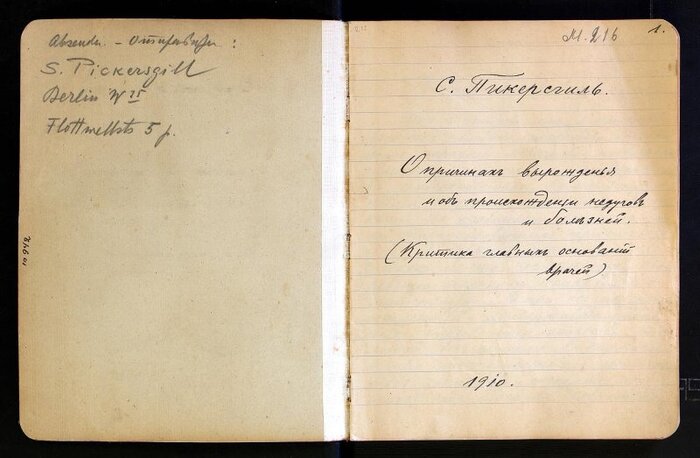 Absender. – Отправит. :
S. Pickersgill
Berlin W 35
Flottwellstr 5 p.
М. 216
1.
С. Пикерсгиль.
О причинахъ вырожденья
и объ происхожденіи недуговъ
и болѣзней.
(Критика главныхъ основаній
врачей)
1910.